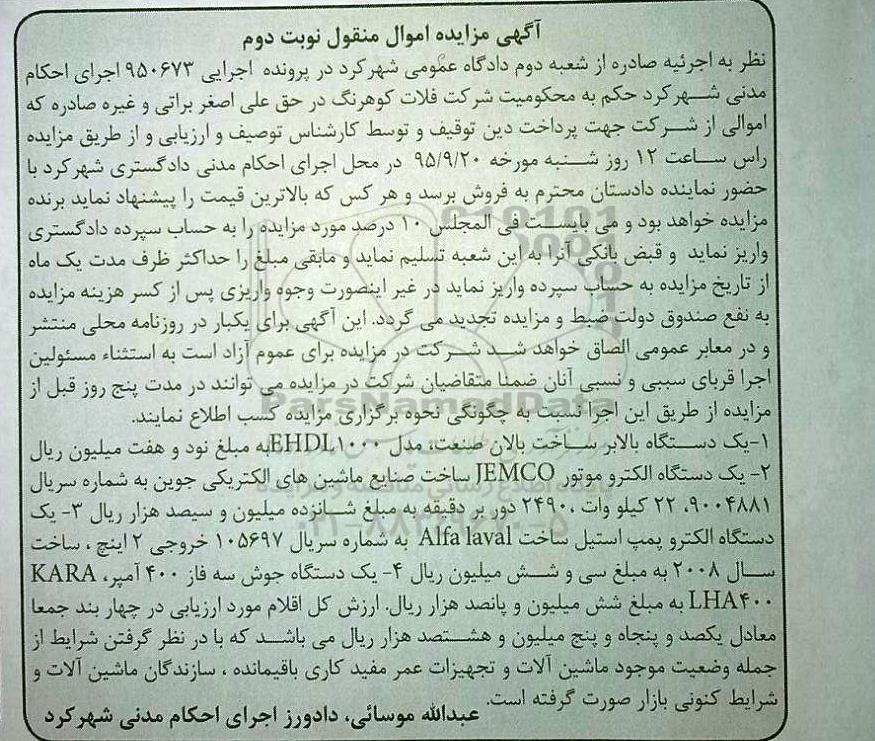 آگهی مزایده اموال منقول نوبت دوم
نظر به اجرئیه صادره از شعبه دوم دادگاه عمومی شهرکرد در پرونده اجرایی ۹۵۰۶۷۳ اجرای احکام
مدنی شهرکرد حکم به محکومیت شرکت فلات کوهرنگ در حق علی اصغر براتی و غیره صادره که
اموالی از شرکت جهت پرداخت دین توقیف و توسط کارشناس توصیف و ارزیابی و از طریق مزایده
راس ساعت ۱۲ روز شنبه مورخه ۹۵/۹/۲۰ در محل اجرای احکام مدنی دادگستری شهرکرد با
حضور نماینده دادستان محترم به فروش برسد و هر کس که بالاترین قیمت را پیشنهاد نماید برنده
مزایده خواهد بود و می بایست فی المجلس ۱۰ درصد مورد مزایده را به حساب سپرده دادگستری
واریز نماید و قبض بانکی آنرا به این شعبه تسلیم نماید و مابقی مبلغ را حداکثر ظرف مدت یک ماه
از تاریخ مزایده به حساب سپرده واریز نماید در غیر اینصورت وجوه واریزی پس از کسر هزینه مزایده
به نفع صندوق دولت ضبط و مزایده تجدید می گردد. این آگهی برای یکبار در روزنامه محلی منتشر
و در معابر عمومی الصاق خواهد شد شرکت در مزایده برای عموم آزاد است به استثناء مسئولین
اجرا قربای سببی و نسبی آنان ضمنا متقاضیان شرکت در مزایده می توانند در مدت پنج روز قبل از
مزایده از طریق این اجرا نسبت به چگونگی نحوه برگزاری مزایده کسب اطلاع نمایند.
۱-یک دستگاه بالابر ساخت بالان صنعت، مدل EHDL۱۰۰۰به مبلغ نود و هفت میلیون ریال
۲- یک دستگاه الکترو موتور JEMCO ساخت صنایع ماشین های الکتریکی جوین به شماره سریال
۹۰۰۴۸۸۱، ۲۲ کیلو وات ،۲۴۹۰ دور بر دقیقه به مبلغ شانزده میلیون و سیصد هزار ریال ۳- یک
دستگاه الکترو پمپ استیل ساخت Alfa laval به شماره سریال ۱۰۵۶۹۷ خروجی ۲ اینچ ، ساخت
سال ۲۰۰۸ به مبلغ سی و شش میلیون ریال ۴- یک دستگاه جوش سه فاز ۴۰۰ آمپر، KARA
LHA۴۰۰ به مبلغ شش میلیون و پانصد هزار ریال. ارزش کل اقلام مورد ارزیابی در چهار بند جمعا
معادل یکصد و پنجاه و پنج میلیون و هشتصد هزار ریال می باشد که با در نظر گرفتن شرایط از
جمله وضعیت موجود ماشین آلات و تجهیزات عمر مفید کاری باقیمانده ، سازندگان ماشین آلات و
شرایط کنونی بازار صورت گرفته است.
عبدالله موسائی، دادورز اجرای احکام مدنی شهرکرد
ParsNamadData
۰۲۱-۸۸۳۴۹۶۷۰-۵